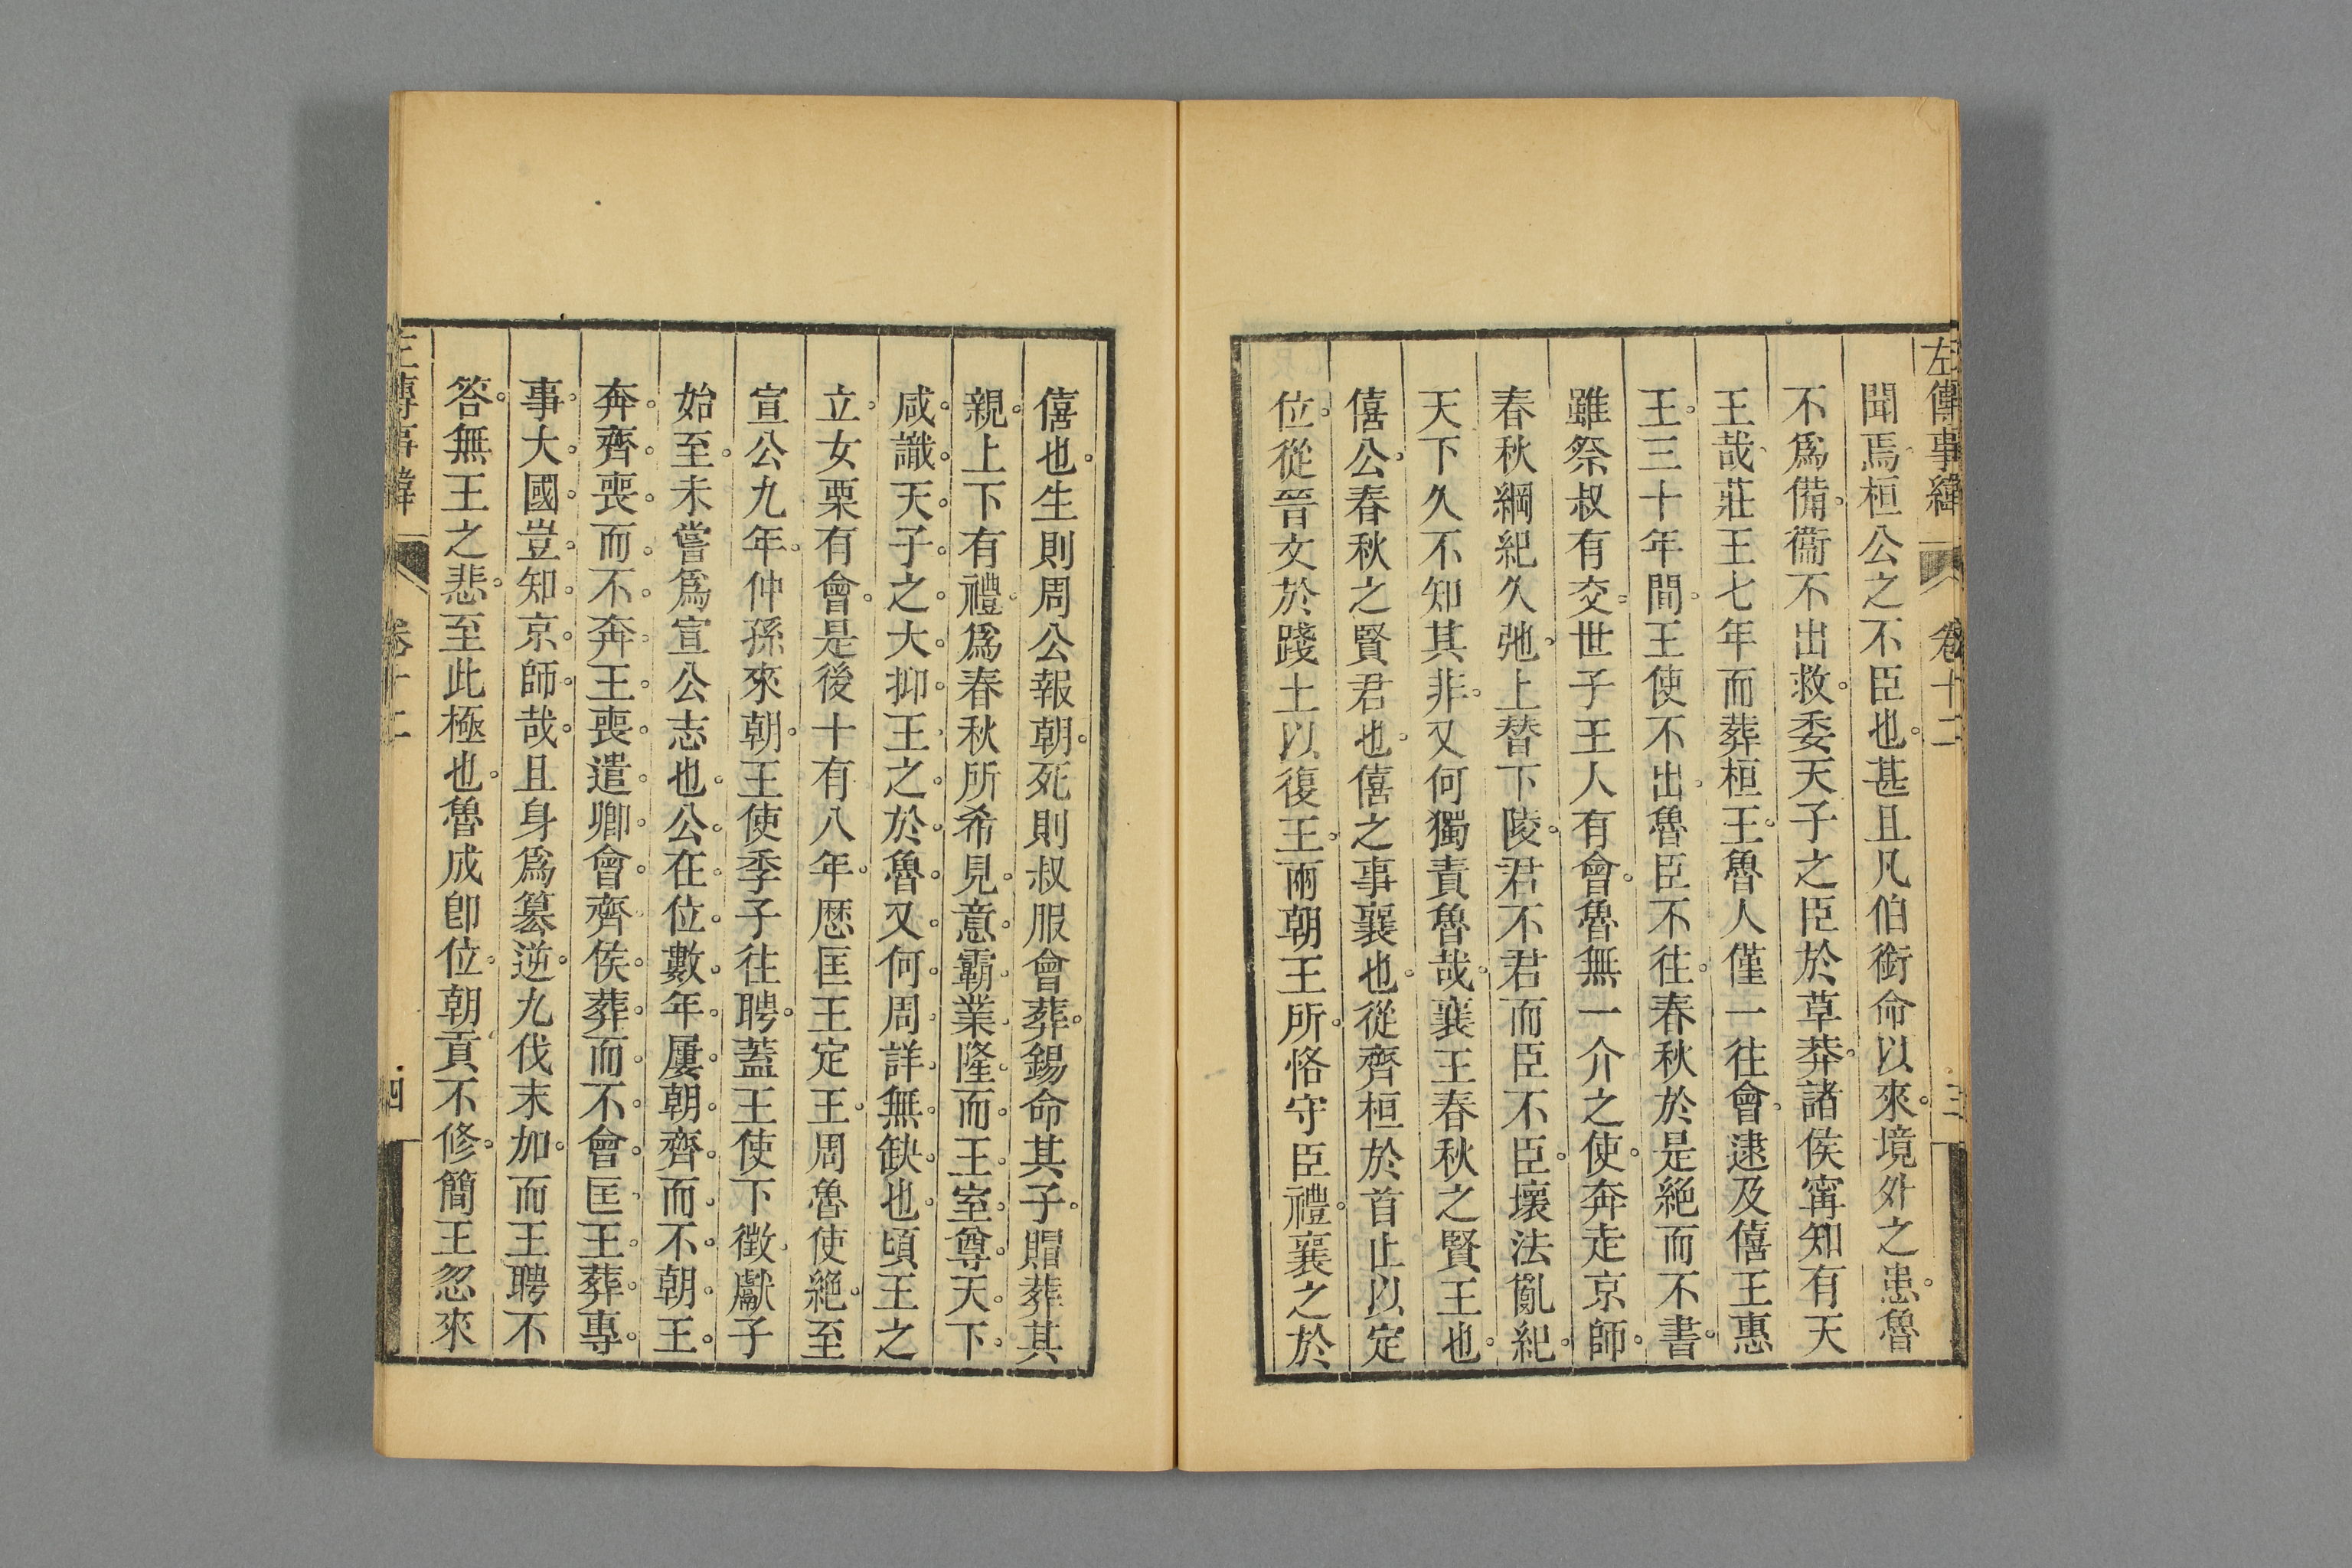 左傳事緯 卷十二 三
聞焉桓公之不臣也甚且凡伯銜命以來境外之患魯
不爲備衞不出救委天子之臣於草莽諸侯甯知有天
王哉莊王七年而葬桓王魯人僅一往會逮及僖王惠
王三十年間王使不出魯臣不往春秋於是絕而不書
雖祭叔有交世子王人有會魯無一介之使奔走京師
春秋綱紀久弛上替下陵君不君而臣不臣壞法亂紀
天下久不知其非又何獨責魯哉襄王春秋之賢王也
僖公春秋之賢君也僖之事襄也從齊桓於首止以定
位從晉文於踐土以復王兩朝王所恪守臣禮襄之於
僖也生則周公報朝死則叔服會葬錫命其子賵葬其
親上下有禮爲春秋所希見意霸業隆而王室尊天下
咸識天子之大抑王之於魯又何周詳無缺也頃王之
立女栗有會是後十有八年歷匡王定王周魯使絕至
宣公九年仲孫來朝王使季子往聘蓋王使下徵獻子
始至未嘗爲宣公志也公在位數年屢朝齊而不朝王
奔齊喪而不奔王喪遣卿會齊侯葬而不會匡王葬專
事大國豈知京師哉且身爲篡逆九伐未加而王聘不
答無王之悲至此極也魯成卽位朝貢不修簡王忽來
左傳事緯 卷十二 四